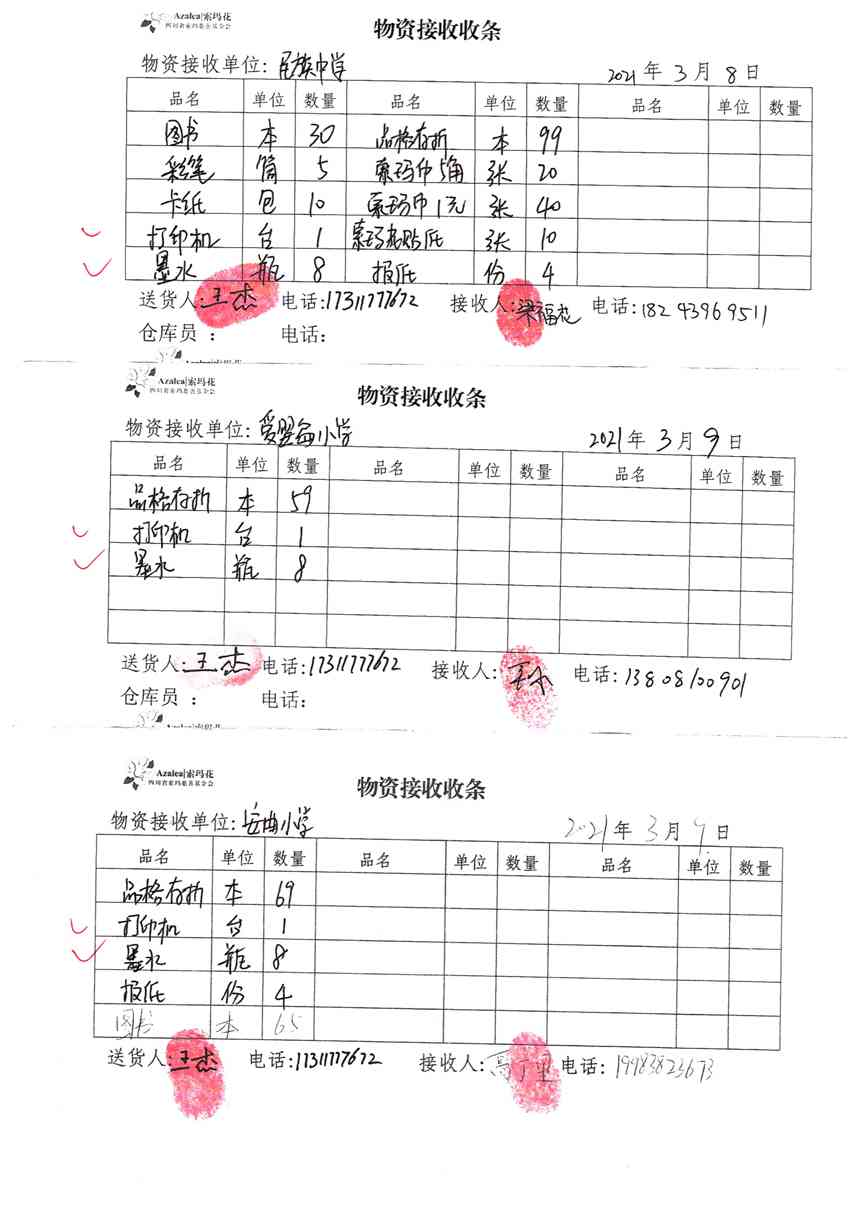 Azalea|索玛花
四川省索玛慈善基金会
物资接收收条
物资接收单位: 民族中学 2021 年 3 月 8 日
品名 单位 数量 品名 单位 数量 品名 单位 数量
图书 本 30 品格存折 本 99
彩笔 筒 5 索玛币5角 张 20
卡纸 包 10 索玛币1元 张 40
打印机 台 1 索玛花贴纸 张 10
墨水 瓶 8 报纸 份 4
送货人: 王杰 电话:17311777672 接收人: 梁福 电话:18243969511
仓库员 : 电话:
Azalea|索玛花
Azalea|索玛花
四川省索玛慈善基金会
物资接收收条
物资接收单位: 小学 2021 年 3 月 9 日
品名 单位 数量 品名 单位 数量 品名 单位 数量
品格存折 本 59
打印机 台 1
墨水 瓶 8
送货人: 王杰 电话:17311777672 接收人: 电话: 13808100901
仓库员 : 电话:
Azalea|索玛花
Azalea|索玛花
四川省索玛慈善基金会
物资接收收条
物资接收单位: 安曲小学 2021 年 3 月 9 日
品名 单位 数量 品名 单位 数量 品名 单位 数量
品格存折 本 69
打印机 台 1
墨水 瓶 8
报纸 份 4
图书 本 65
送货人: 王杰 电话:17311777672 接收人: 电话: 19983823673